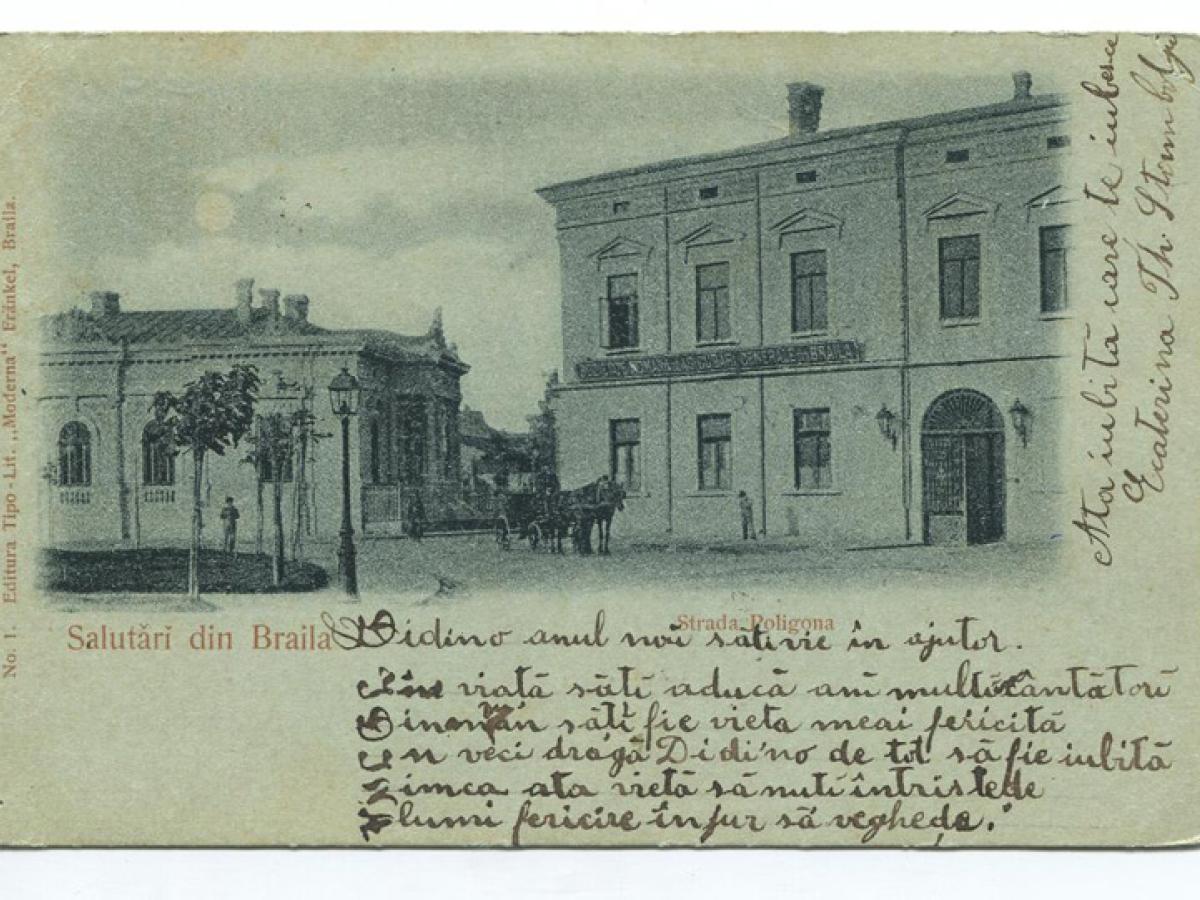 No. 1. Editura Tipo-Lit. „Moderna“ Fränkel, Braila.
Salutări din Braila
Strada Poligona
Didino anul noŭ sătĭ vie în ajutor.
În viată sătĭ aducă anĭ multĭ cântătorĭ
Din săti fie vieta meai fericită
În veci dragă Didino de tot să fie iubită
ata vietă să nuti întristede
lumĭ fericire înjur să veghede.
Ata iubita care te iubesce
Ecaterina Th.